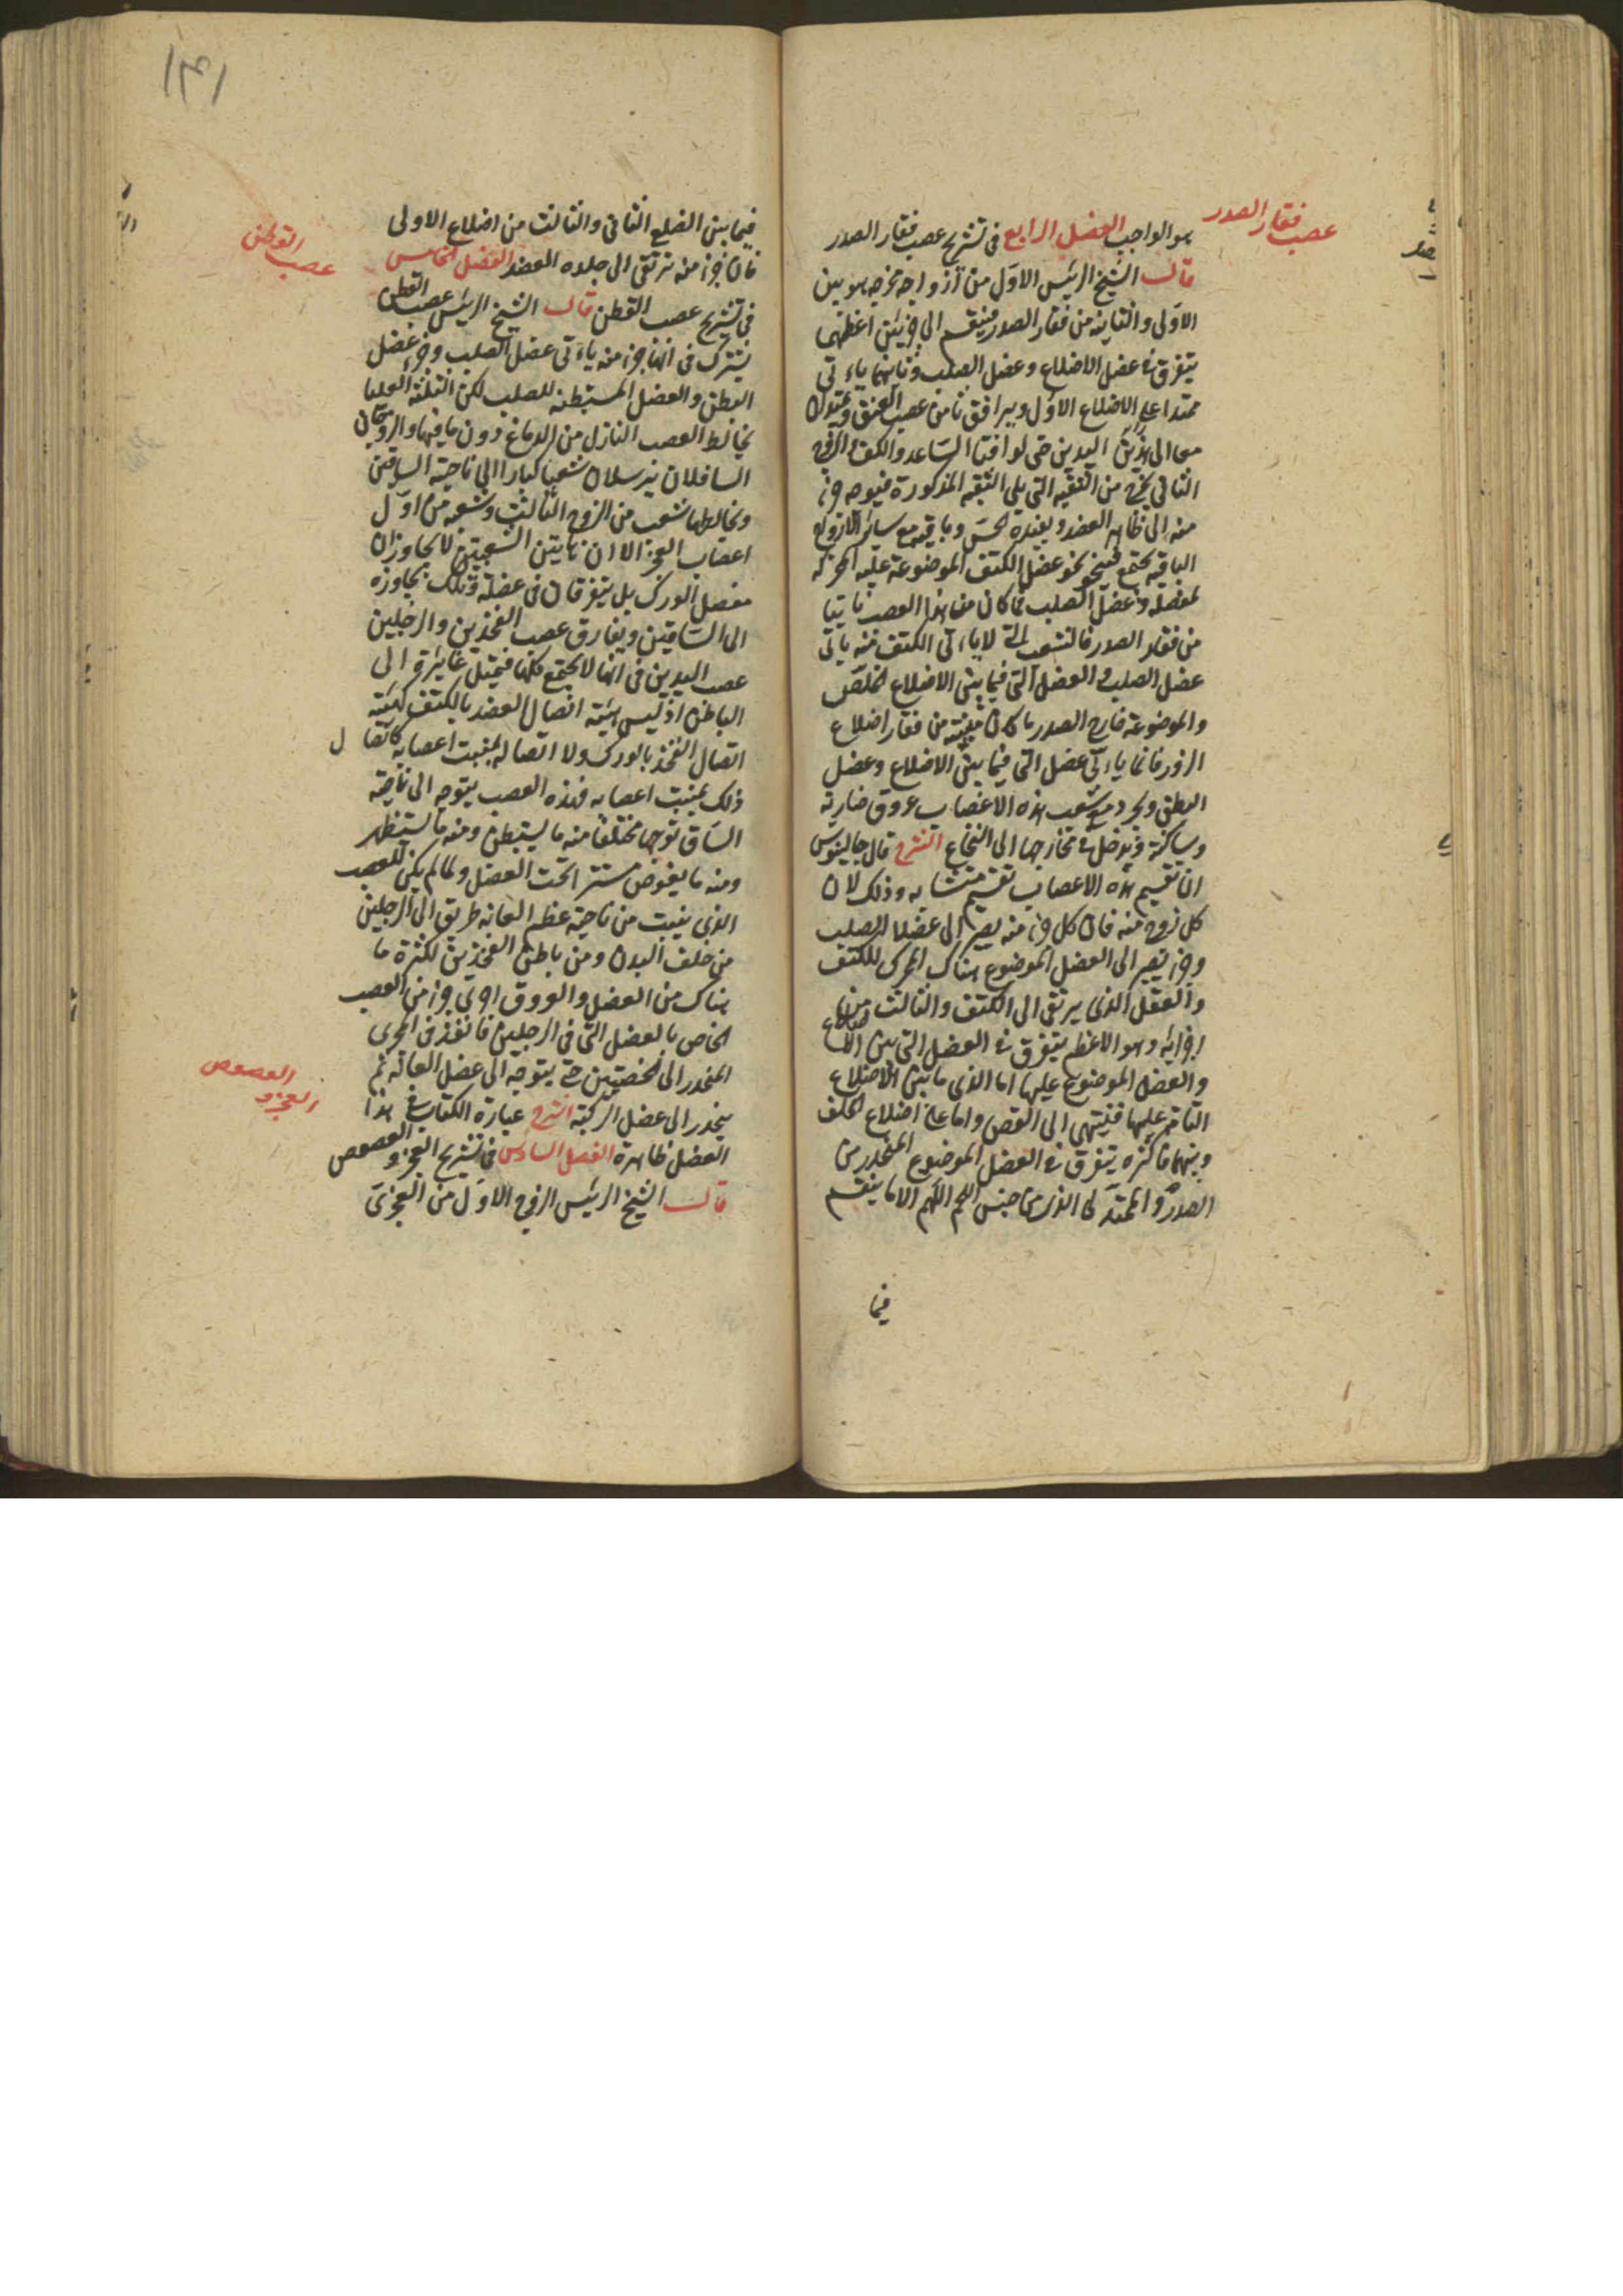 عصب فقار الصدر
هو الواجب الفصل الرابع فى تشريح عصب فقار الصدر
قال الشيخ الرئيس الاول من ازواجه مخرجه هو بين
الاولى والثانية من فقار الصدر فينقسم الى جزئين اعظمهما
يتفرق فى عضل الاضلاع وعضل الصلب وثانيهما ياءتى
ممتدا على الاضلاع الاول ويرافق ثامن عصب العنق ويمتدان
معا الى اليدين حتى يوافيا الساعد والكف والزوج
الثانى يخرج من الثقبه التى يلى الثقبه المذكورة فيتوجه جزء
منه الى ظاهر العضد ويفيده الحس وباقيه مع سائر الازواج
الباقيه يجتمع فينحو نحو عضل الكتف الموضوعة عليه المحركه
لمفصله وعضل الصلب فما كان من هذا العصب نابتا
من فقار الصدر فالشعب التى لا ياءتى الكتف منه ياتى
عضل الصلب والعضل التى فيما بين الاضلاع الخلص
والموضوعة خارج الصدر وما كان منبته من فقار اضلاع
الزور فانما ياءتى عضل التى فيما بين الاضلاع وعضل
البطن ويجرى مع شعب هذه الاعصاب عروق ضاربة
وساكنة وتدخل فى مخارجها الى النخاع الشرح قال جالينوس
ان تقسيم هذه الاعصاب تقسيم متشابه وذلك لان
كل زوج منه فان كل جزء منه يصير الى عضلا الصلب
وجزء يصير الى العضل الموضوع هناك المحرك للكتف
والعضل الذى يرتقى الى الكتف والثالث من
اجزائه وهو الاعظم يتفرق فى العضل التى بين الاضلاع
والعضل الموضوع عليها اما الذى ما بين الاضلاع
التامة عليها فينتهى الى القص واما على اضلاع الخلف
وبينهما فاكثره يتفرق فى العضل الموضوع المنحدر من
الصدر والممتد الى الذى من جنس اللحم اللهم الا ما ينقسم
فيما
١٣١
فيما بين الضلع الثانى والثالث من اضلاع الاولى
فان جزء منه يرتقى الى جلده العضد الفصل الخامس
عصب القطن
فى تشريح عصب القطن قال الشيخ الرئيس عصب القطن
يشترك فى انها جزء منه ياءتى عضل الصلب وجزء عضل
البطن والعضل المستبطنه للصلب لكن الثلثة العليا
يخالط العصب النازل من الدماغ دون باقيها والزوجان
السافلان يرسلان شعبا كبارا الى ناحية الساقين
ويخالطها شعب من الزوج الثالث وشعبه من اول
اعصاب العجز الا ان هاتين الشعبتين لا يجاوزان
مفصل الورك بل يتفرقان فى عضله وتلك يجاوزه
الى الساقين ويفارق عصب الفخذين والرجلين
عصب اليدين فى انها لا يجتمع كلها فيميل غائرة الى
الباطن اذ ليس هيئة اتصال العضد بالكتف كهيئة
اتصال الفخذ بالورك ولا اتصاله بمنبت اعصابه كاتصال
ذلك بمنبت اعصابه فهذه العصب يتوجه الى ناحية
الساق توجها مختلفا منه ما يستبطن ومنه ما يستظهر
ومنه ما يغوص مستترا تحت العضل ولما لم يكن للعصب
الذى ينبت من ناحية عظم العانه طريق الى الرجلين
من خلف البدن ومن باطن الفخذين لكثرة ما
هناك من العضل والعروق اجرى جزء من العصب
الخاص بالعضل التى فى الرجلين فانفذ فى المجرى
المنحدر الى الخصيتين حتى يتوجه الى عضل العانه ثم
ينحدر الى عضل الركبة الشرح عبارة الكتاب فى هذا
العجز و
العصوص
الفصل ظاهرة الفصل السادس فى تشريح العجز والعصوص
قال الشيخ الرئيس الزوج الاول من العجزى